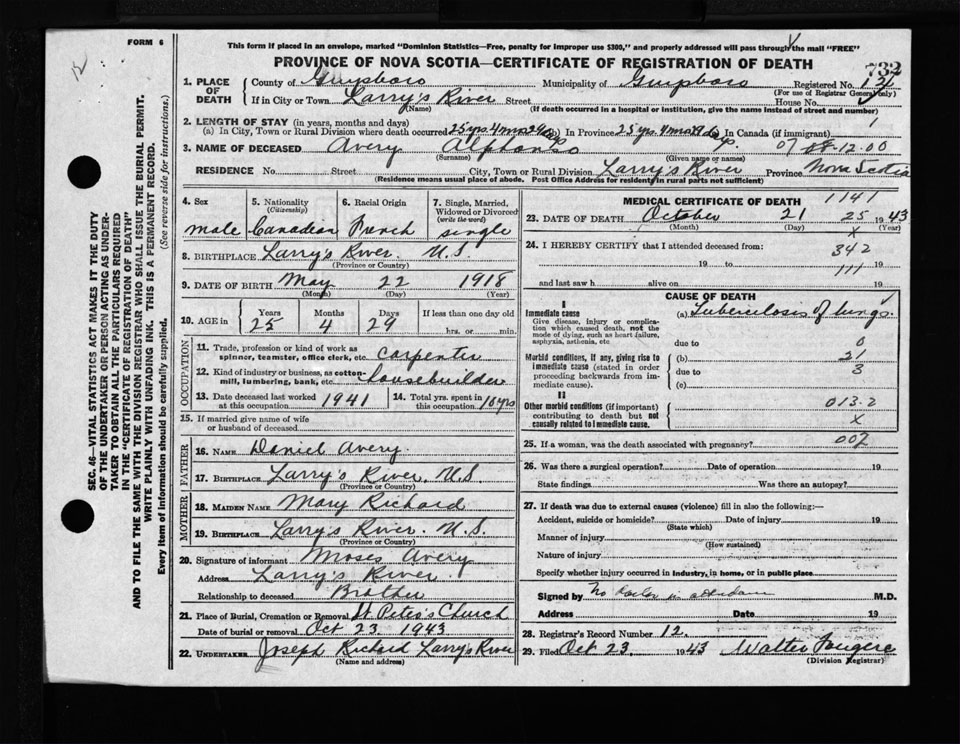 FORM 6
This form if placed in an envelope, marked "Dominion Statistics—Free, penalty for improper use $300," and properly addressed will pass through the mail "FREE"
PROVINCE OF NOVA SCOTIA—CERTIFICATE OF REGISTRATION OF DEATH
732
1. PLACE OF DEATH
County of Guysboro Municipality of Guysboro Registered No.
(For use of Registrar General only)
If in City or Town Larry's River Street House No.
(Name) (If death occurred in a hospital or institution, give the name instead of street and number)
2. LENGTH OF STAY (in years, months and days)
(a) In City, Town or Rural Division where death occurred 25 yrs 4 mos 29 dys (b) In Province 25 yrs 4 mos 29 dys. (c) In Canada (if immigrant)
3. NAME OF DECEASED Avery Alphonso
(Surname) (Given name or names)
07 08-12.00
RESIDENCE No. Street City, Town or Rural Division Larry's River Province Nova Scotia
(Residence means usual place of abode. Post Office Address for residents in rural parts not sufficient)
4. Sex male
5. Nationality (Citizenship) Canadian
6. Racial Origin French
7. Single, Married, Widowed or Divorced (write the word) single
8. BIRTHPLACE Larry's River N.S.
(Province or Country)
9. DATE OF BIRTH May 22 1918
(Month) (Day) (Year)
10. AGE in Years 25 Months 4 Days 29 If less than one day old hrs. or min.
OCCUPATION
11. Trade, profession or kind of work as spinner, teamster, office clerk, etc. carpenter
12. Kind of industry or business, as cotton-mill, lumbering, bank, etc. housebuilder
13. Date deceased last worked at this occupation 1941
14. Total yrs. spent in this occupation 10 yrs
15. If married give name of wife or husband of deceased
FATHER
16. NAME Daniel Avery
17. BIRTHPLACE Larry's River. N.S
(Province or Country)
MOTHER
18. MAIDEN NAME Mary Richard
19. BIRTHPLACE Larry's River. N.S.
(Province or Country)
20. Signature of informant Moses Avery
Address Larry's River
Relationship to deceased Brother
21. Place of Burial, Cremation or Removal St Peter's Church
Date of burial or removal Oct 23 1943
22. UNDERTAKER Joseph Richard Larry's River
(Name and address)
MEDICAL CERTIFICATE OF DEATH
1141
23. DATE OF DEATH October 21 1943
(Month) (Day) (Year)
25
x
24. I HEREBY CERTIFY that I attended deceased from:
342
19 to 19
111
and last saw h alive on 19
CAUSE OF DEATH
I
Immediate cause
Give disease, injury or complication which caused death, not the mode of dying, such as heart failure, asphyxia, asthenia, etc
(a) Tuberculosis of lungs.
due to 0
Morbid conditions, if any, giving rise to immediate cause (stated in order proceeding backwards from immediate cause).
(b) 21
due to 3
(c)
II
Other morbid conditions (if important) contributing to death but not causally related to immediate cause.
013.2
x
25. If a woman, was the death associated with pregnancy? 002
26. Was there a surgical operation? Date of operation 19
State findings Was there an autopsy?
27. If death was due to external causes (violence) fill in also the following:—
Accident, suicide or homicide? Date of injury 19
(State which)
Manner of injury
(How sustained)
Nature of injury
Specify whether injury occurred in industry, in home, or in public place
Signed by No doctor in attendance M.D.
Address Date 19
28. Registrar's Record Number 12.
29. Filed Oct 23, 1943 Walter Fougere
(Division Registrar)
SEC. 46—VITAL STATISTICS ACT MAKES IT THE DUTY
OF THE UNDERTAKER OR PERSON ACTING AS UNDER-
TAKER TO OBTAIN ALL THE PARTICULARS REQUIRED
IN THE "CERTIFICATE OF REGISTRATION OF DEATH"
AND TO FILE THE SAME WITH THE DIVISION REGISTRAR WHO SHALL ISSUE THE BURIAL PERMIT.
WRITE PLAINLY WITH UNFADING INK. THIS IS A PERMANENT RECORD.
Every item of information should be carefully supplied. (See reverse side for instructions.)